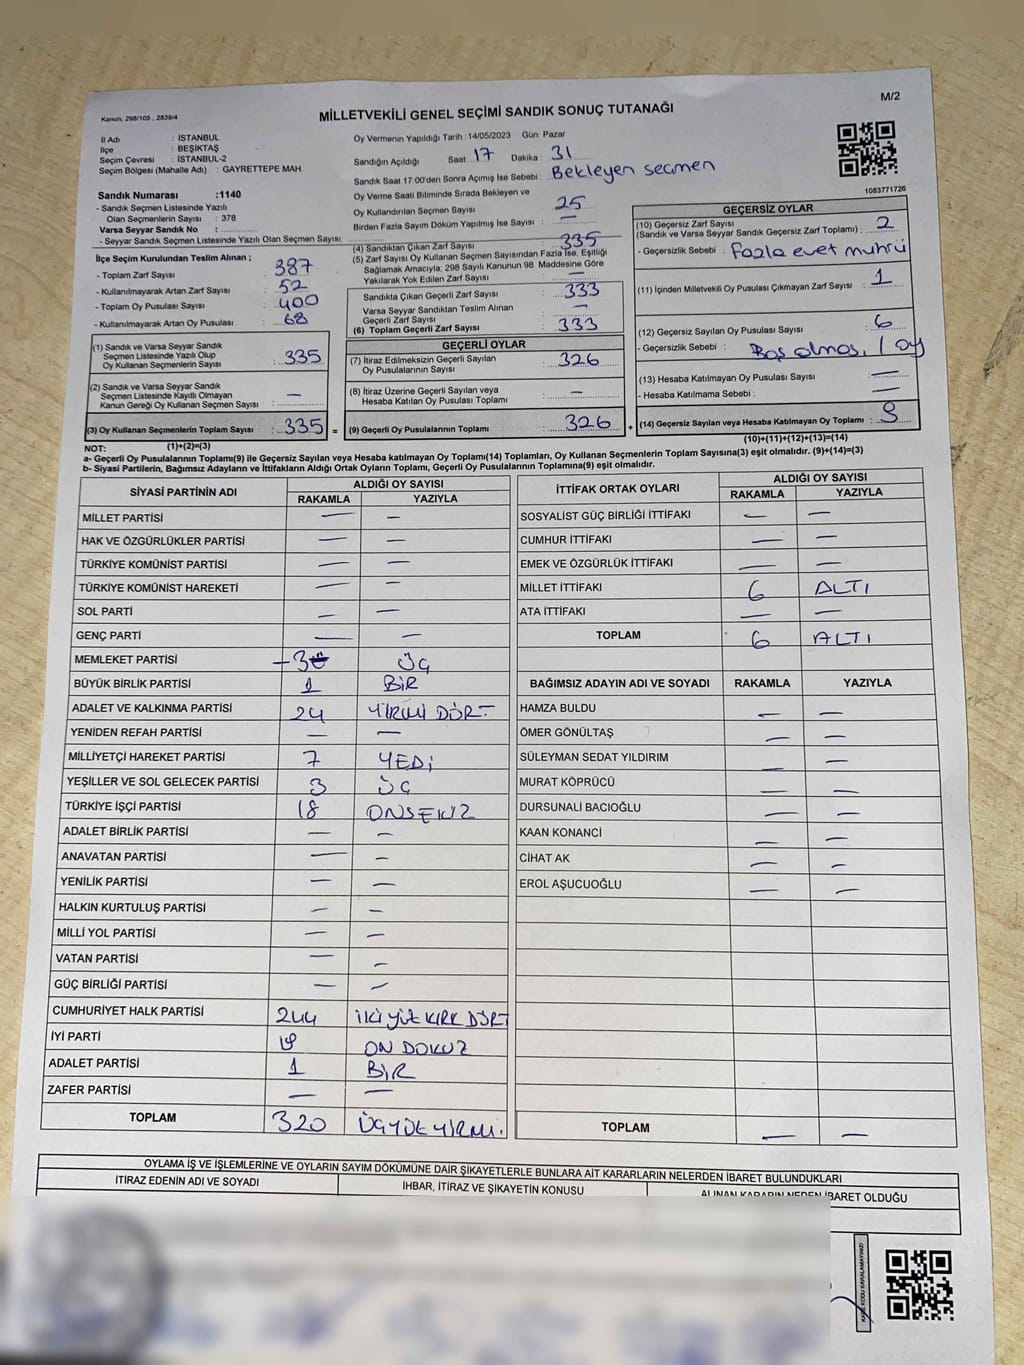 M/2
Kanun; 298/105 , 2839/4
MİLLETVEKİLİ GENEL SEÇİMİ SANDIK SONUÇ TUTANAĞI
İl Adı : İSTANBUL
İlçe : BEŞİKTAŞ
Seçim Çevresi : İSTANBUL-2
Seçim Bölgesi (Mahalle Adı) : GAYRETTEPE MAH.
Oy Vermenin Yapıldığı Tarih : 14/05/2023 Gün: Pazar
Sandığın Açıldığı Saat 17 Dakika : 31
Sandık Saat 17:00'den Sonra Açmış İse Sebebi : Bekleyen seçmen
Oy Verme Saati Bitiminde Sırada Bekleyen ve
Oy Kullandırılan Seçmen Sayısı : 25
Birden Fazla Sayım Döküm Yapılmış İse Sayısı : —
1083771726
Sandık Numarası :1140
- Sandık Seçmen Listesinde Yazılı
Olan Seçmenlerin Sayısı : 378
Varsa Seyyar Sandık No :
- Seyyar Sandık Seçmen Listesinde Yazılı Olan Seçmen Sayısı:
İlçe Seçim Kurulundan Teslim Alınan ;
- Toplam Zarf Sayısı : 387
- Kullanılmayarak Artan Zarf Sayısı : 52
- Toplam Oy Pusulası Sayısı : 400
- Kullanılmayarak Artan Oy Pusulası : 68
(1) Sandık ve Varsa Seyyar Sandık
Seçmen Listesinde Yazılı Olup
Oy Kullanan Seçmenlerin Sayısı : 335
(2) Sandık ve Varsa Seyyar Sandık
Seçmen Listesinde Kayıtlı Olmayan
Kanun Gereği Oy Kullanan Seçmen Sayısı : —
(3) Oy Kullanan Seçmenlerin Toplam Sayısı : 335 =
(1)+(2)=(3)
(4) Sandıktan Çıkan Zarf Sayısı : 335
(5) Zarf Sayısı Oy Kullanan Seçmen Sayısından Fazla İse, Eşitliği
Sağlamak Amacıyla; 298 Sayılı Kanunun 98. Maddesine Göre
Yakılarak Yok Edilen Zarf Sayısı : —
Sandıkta Çıkan Geçerli Zarf Sayısı : 333
Varsa Seyyar Sandıktan Teslim Alınan
Geçerli Zarf Sayısı : —
(6) Toplam Geçerli Zarf Sayısı : 333
GEÇERLİ OYLAR
(7) İtiraz Edilmeksizin Geçerli Sayılan
Oy Pusulalarının Sayısı : 326
(8) İtiraz Üzerine Geçerli Sayılan veya
Hesaba Katılan Oy Pusulası Toplamı : —
(9) Geçerli Oy Pusulalarının Toplamı : 326 +
GEÇERSİZ OYLAR
(10) Geçersiz Zarf Sayısı
(Sandık ve Varsa Seyyar Sandık Geçersiz Zarf Toplamı) : 2
- Geçersizlik Sebebi : fazla evet mührü
(11) İçinden Milletvekili Oy Pusulası Çıkmayan Zarf Sayısı : 1
(12) Geçersiz Sayılan Oy Pusulası Sayısı : 6
- Geçersizlik Sebebi : Boş olması, 1 oy
(13) Hesaba Katılmayan Oy Pusulası Sayısı : —
- Hesaba Katılmama Sebebi : —
(14) Geçersiz Sayılan veya Hesaba Katılmayan Oy Toplamı : 9
(10)+(11)+(12)+(13)=(14)
NOT:
a- Geçerli Oy Pusulasının Toplamı(9) ile Geçersiz Sayılan veya Hesaba Katılmayan Oy Pusulası(14) Toplamları, Oy Kullanan Seçmenlerin Toplam Sayısına(3) eşit olmalıdır. (9)+(14)=(3)
b- Siyasi Partilerin, Bağımsız Adayların ve İttifakların Aldığı Ortak Oyların Toplamı, Geçerli Oy Pusulalarının Toplamına(9) eşit olmalıdır.
SİYASİ PARTİNİN ADI
ALDIĞI OY SAYISI
RAKAMLA YAZIYLA
MİLLET PARTİSİ — —
HAK VE ÖZGÜRLÜKLER PARTİSİ — —
TÜRKİYE KOMÜNİST PARTİSİ — —
TÜRKİYE KOMÜNİST HAREKETİ — —
SOL PARTİ — —
GENÇ PARTİ — —
MEMLEKET PARTİSİ —3 ÜÇ
BÜYÜK BİRLİK PARTİSİ 1 BİR
ADALET VE KALKINMA PARTİSİ 24 YİRMİ DÖRT
YENİDEN REFAH PARTİSİ — —
MİLLİYETÇİ HAREKET PARTİSİ 7 YEDİ
YEŞİLLER VE SOL GELECEK PARTİSİ 3 ÜÇ
TÜRKİYE İŞÇİ PARTİSİ 18 ONSEKİZ
ADALET BİRLİK PARTİSİ — —
ANAVATAN PARTİSİ — —
YENİLİK PARTİSİ — —
HALKIN KURTULUŞ PARTİSİ — —
MİLLİ YOL PARTİSİ — —
VATAN PARTİSİ — —
GÜÇ BİRLİĞİ PARTİSİ — —
CUMHURİYET HALK PARTİSİ 244 İKİ YÜZ KIRK DÖRT
İYİ PARTİ 19 ON DOKUZ
ADALET PARTİSİ 1 BİR
ZAFER PARTİSİ — —
TOPLAM 320 ÜÇYÜZ YİRMİ.
İTTİFAK ORTAK OYLARI
ALDIĞI OY SAYISI
RAKAMLA YAZIYLA
SOSYALİST GÜÇ BİRLİĞİ İTTİFAKI — —
CUMHUR İTTİFAKI — —
EMEK VE ÖZGÜRLÜK İTTİFAKI — —
MİLLET İTTİFAKI 6 ALTI
ATA İTTİFAKI — —
TOPLAM 6 ALTI
BAĞIMSIZ ADAYIN ADI VE SOYADI RAKAMLA YAZIYLA
HAMZA BULDU — —
ÖMER GÖNÜLTAŞ — —
SÜLEYMAN SEDAT YILDIRIM — —
MURAT KÖPRÜCÜ — —
DURSUNALİ BACIOĞLU — —
KAAN KONANCİ — —
CİHAT AK — —
EROL AŞUCUOĞLU — —
TOPLAM — —
OYLAMA İŞ VE İŞLEMLERİNE VE OYLARIN SAYIM DÖKÜMÜNE DAİR ŞİKAYETLERLE BUNLARA AİT KARARLARIN NELERDEN İBARET BULUNDUKLARI
İTİRAZ EDENİN ADI VE SOYADI
İHBAR, İTİRAZ VE ŞİKAYETİN KONUSU
ALINAN KARARIN NEDEN İBARET OLDUĞU
KARE KODU KARALAMAYINIZ!